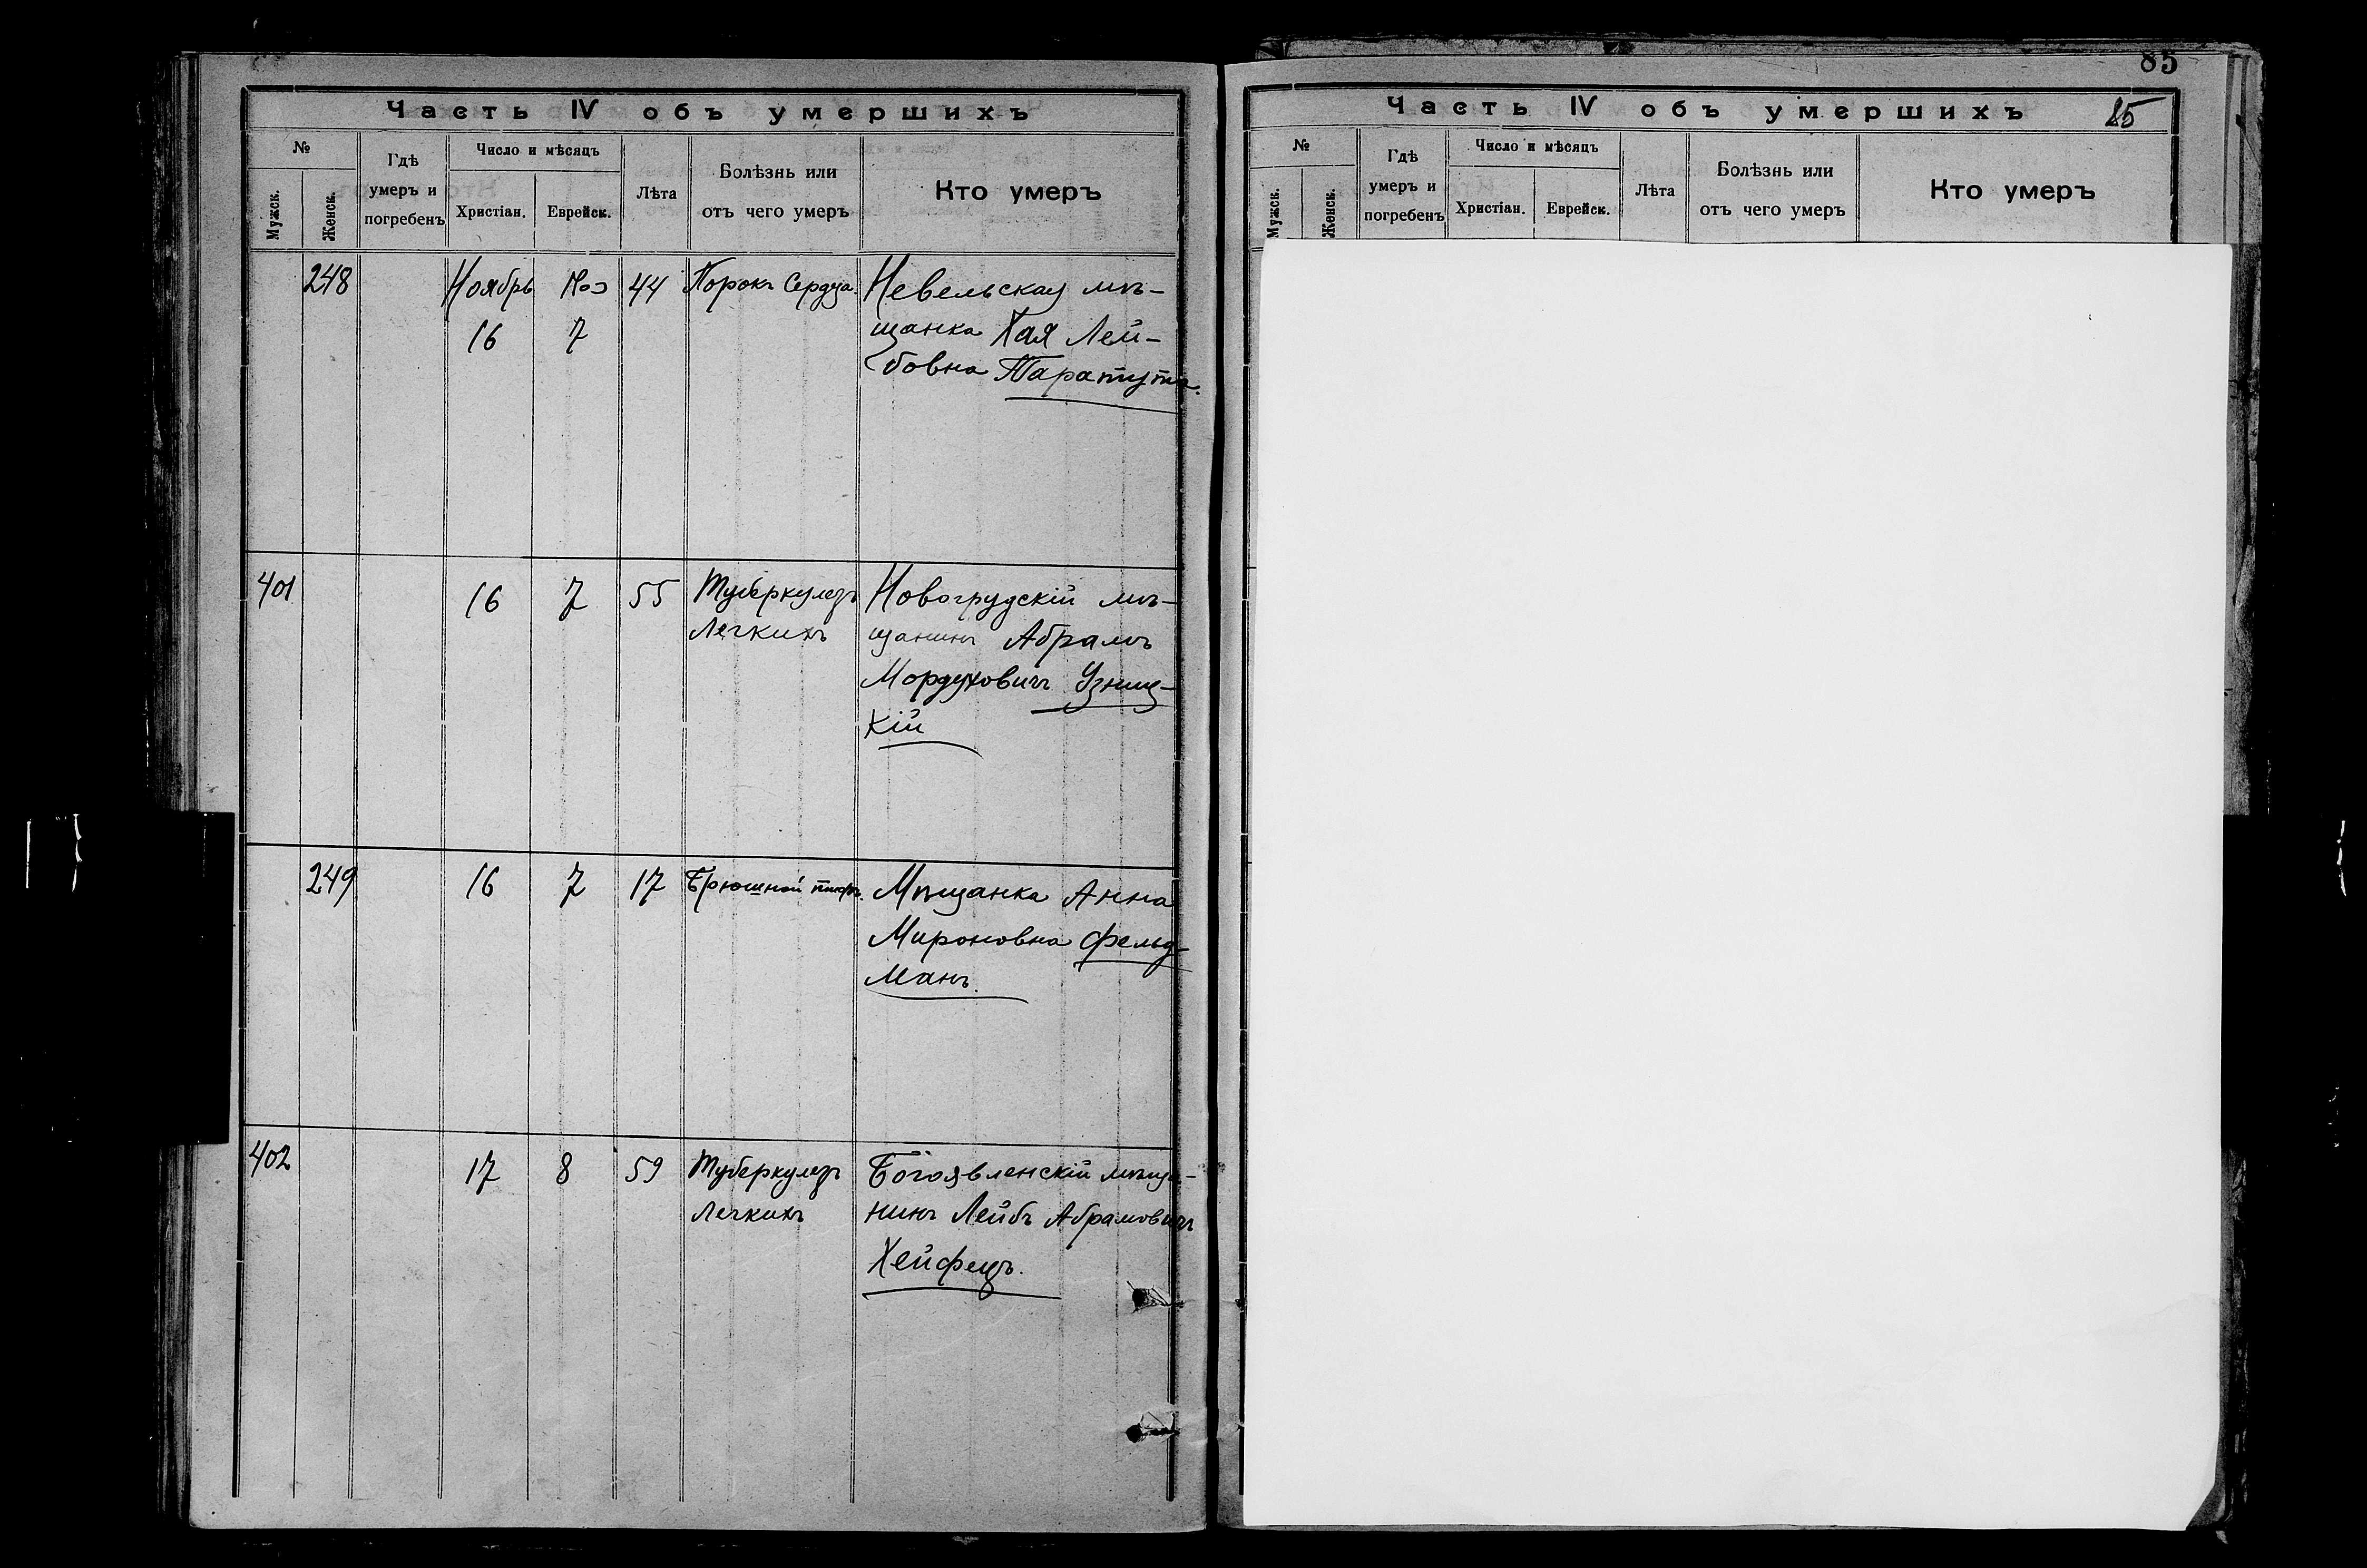 Часть IV объ умершихъ
№
Мужск.
Женск.
Гдѣ
умеръ и
погребенъ
Число и мѣсяцъ
Христіан.
Еврейск.
Лѣта
Болѣзнь или
отъ чего умеръ
Кто умеръ
248
Ноябрь
16
7
44
Порокъ Сердца.
Невельская мѣ-
щанка Хая Лей-
бовна Таратута.
401
16
7
55
Туберкулезъ
Легкихъ
Новогрудскій мѣ-
щанинъ Абрамъ
Мордуховичъ Узниц-
кій
249
16
7
17
Брюшной тифъ.
Мѣщанка Анна
Мироновна Фельд-
манъ.
402
17
8
59
Туберкулезъ
Легкихъ
Богоявленскій мѣща-
нинъ Лейбъ Абрамовичъ
Хейфецъ.
85
Часть IV объ умершихъ
85
№
Мужск.
Женск.
Гдѣ
умеръ и
погребенъ
Число и мѣсяцъ
Христіан.
Еврейск.
Лѣта
Болѣзнь или
отъ чего умеръ
Кто умеръ